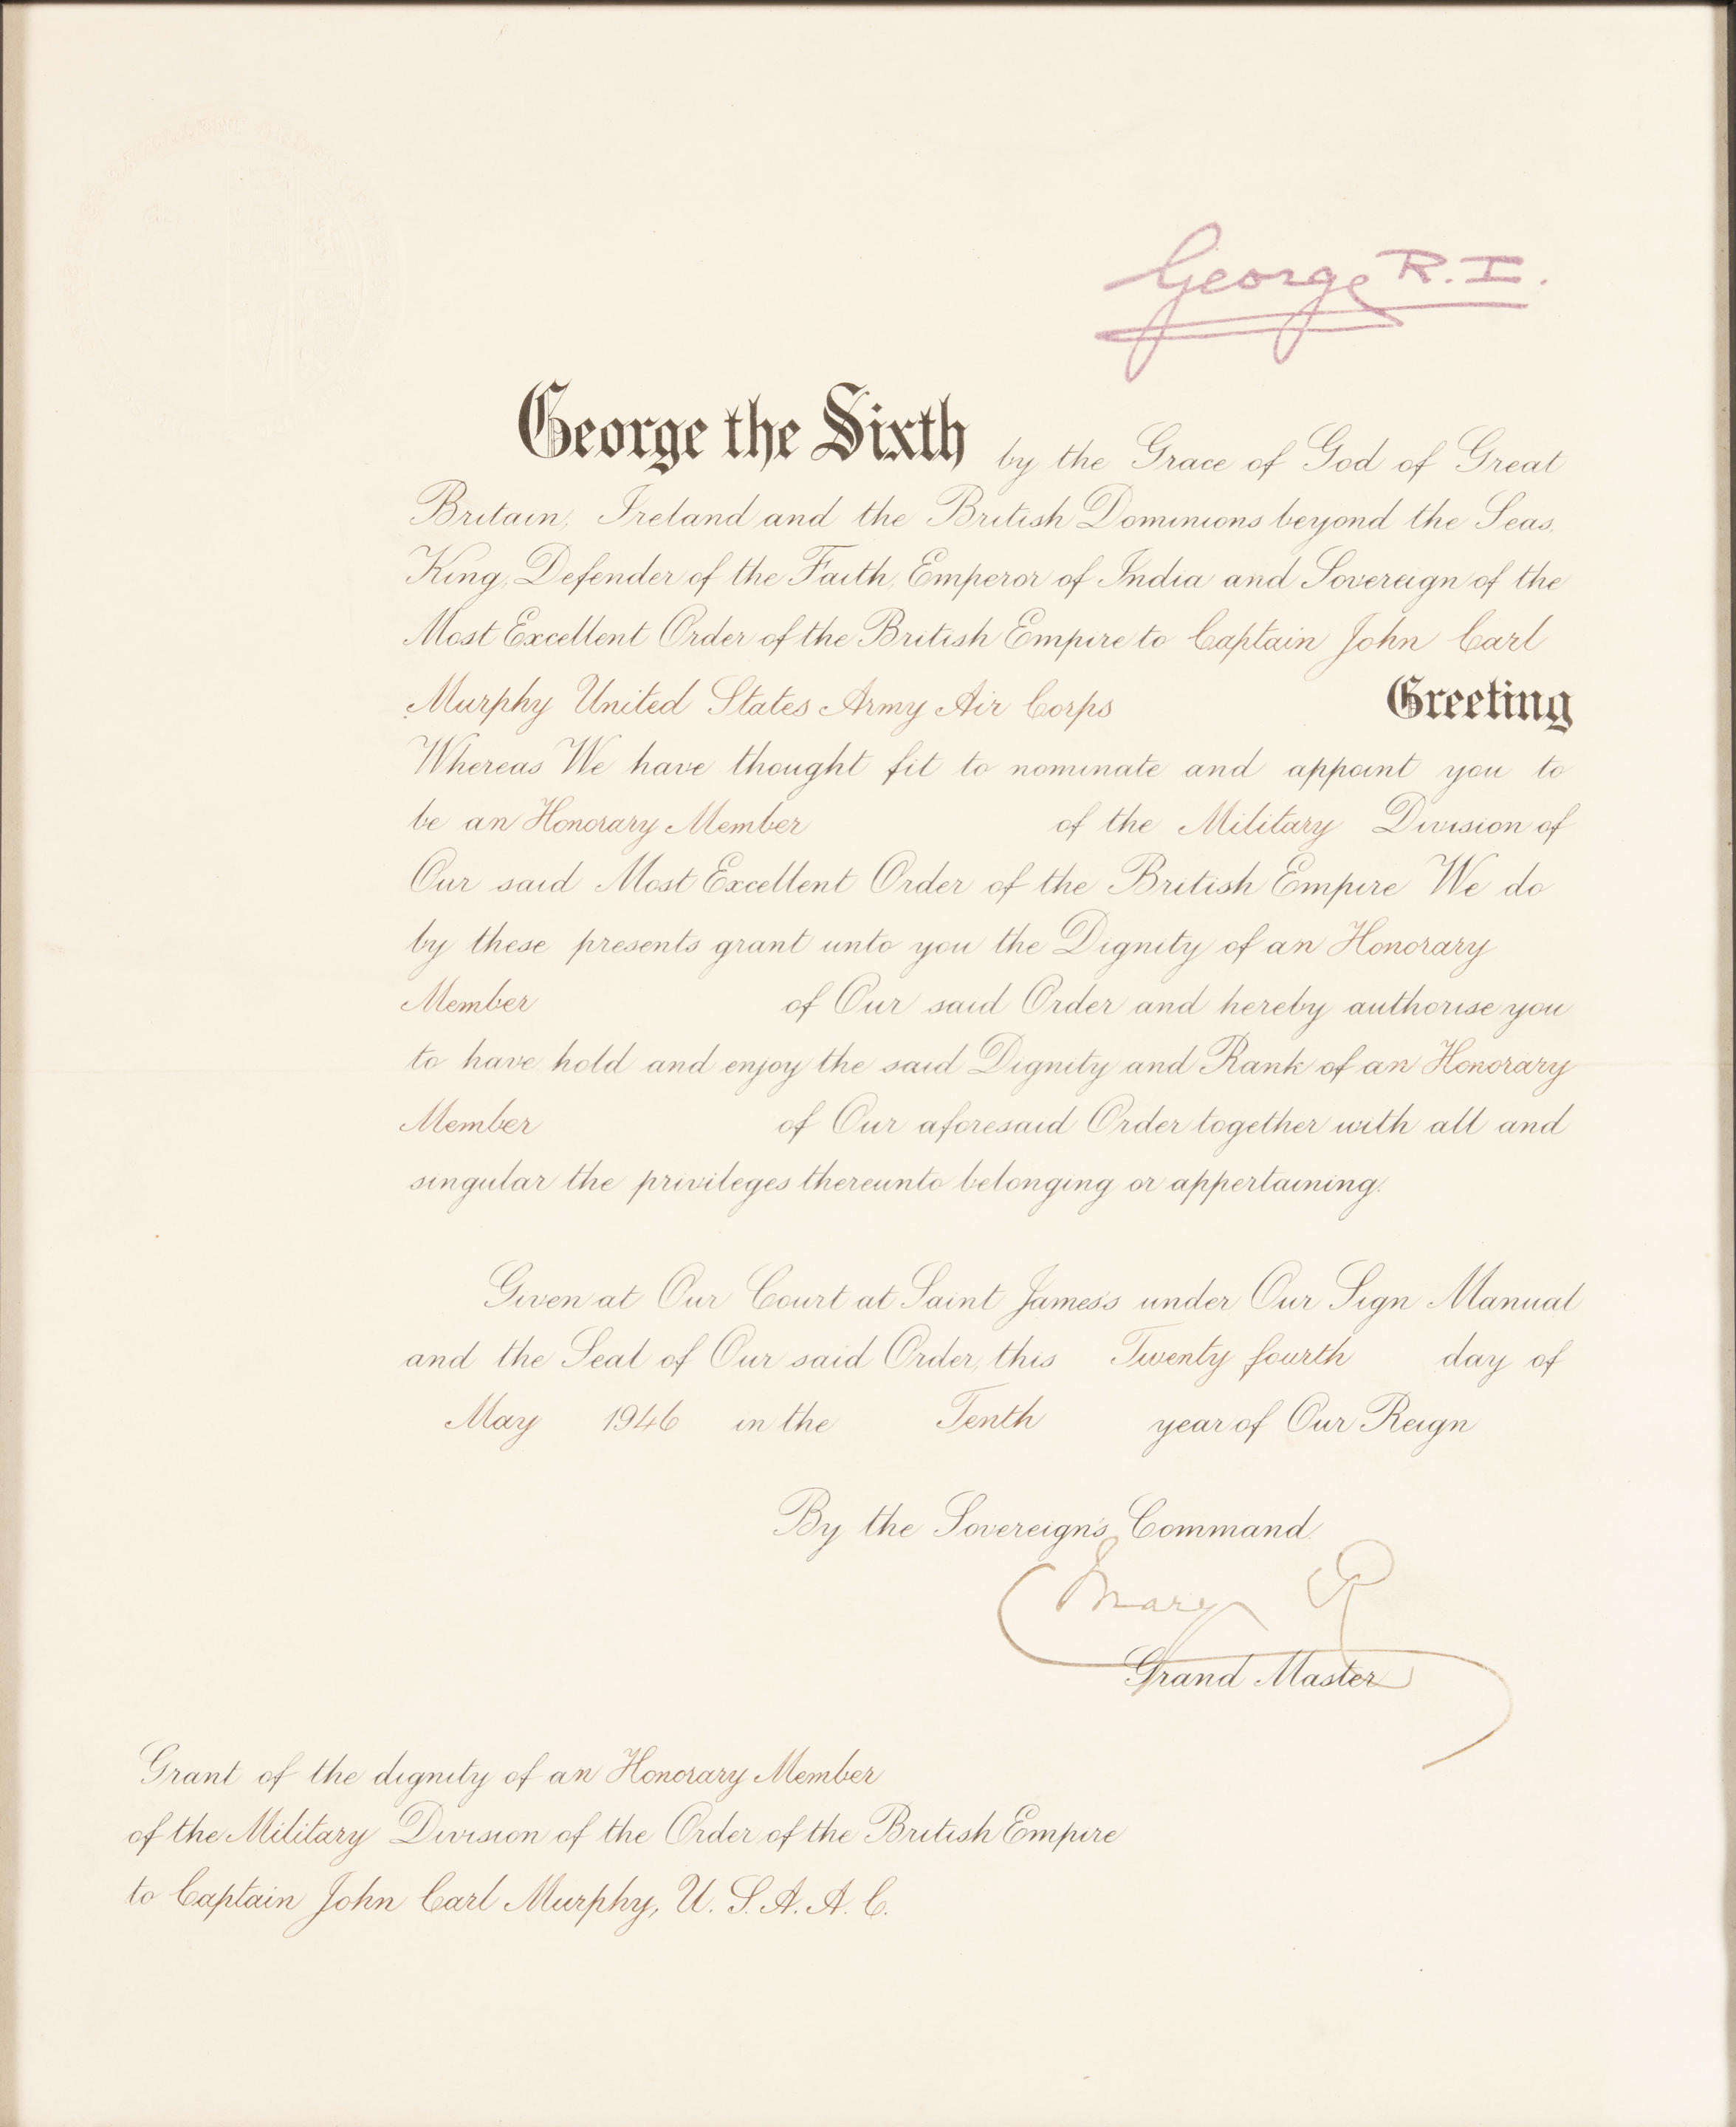 George R. I.
George the Sixth by the Grace of God of Great
Britain, Ireland and the British Dominions beyond the Seas,
King, Defender of the Faith, Emperor of India and Sovereign of the
Most Excellent Order of the British Empire to Captain John Carl
Murphy United States Army Air Corps Greeting
Whereas We have thought fit to nominate and appoint you to
be an Honorary Member of the Military Division of
Our said Most Excellent Order of the British Empire We do
by these presents grant unto you the Dignity of an Honorary
Member of Our said Order and hereby authorise you
to have hold and enjoy the said Dignity and Rank of an Honorary
Member of Our aforesaid Order together with all and
singular the privileges thereunto belonging or appertaining.
Given at Our Court at Saint James's under Our Sign Manual
and the Seal of Our said Order, this Twenty fourth day of
May 1946 in the Tenth year of Our Reign
By the Sovereign's Command.
Mary R
Grand Master
Grant of the dignity of an Honorary Member
of the Military Division of the Order of the British Empire
to Captain John Carl Murphy, U. S. A. A. C.